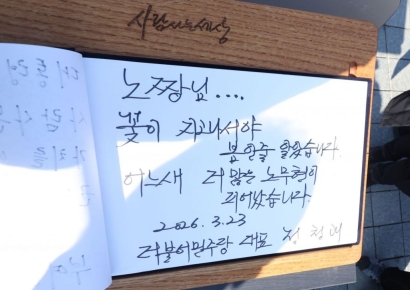 사람사는세상
노짱님....
꽃이 지고나서야
봄인줄 알았습니다
어느새 더 많은 노무현이
피어났습니다
2026. 3. 23
더불어민주당 대표 정청래